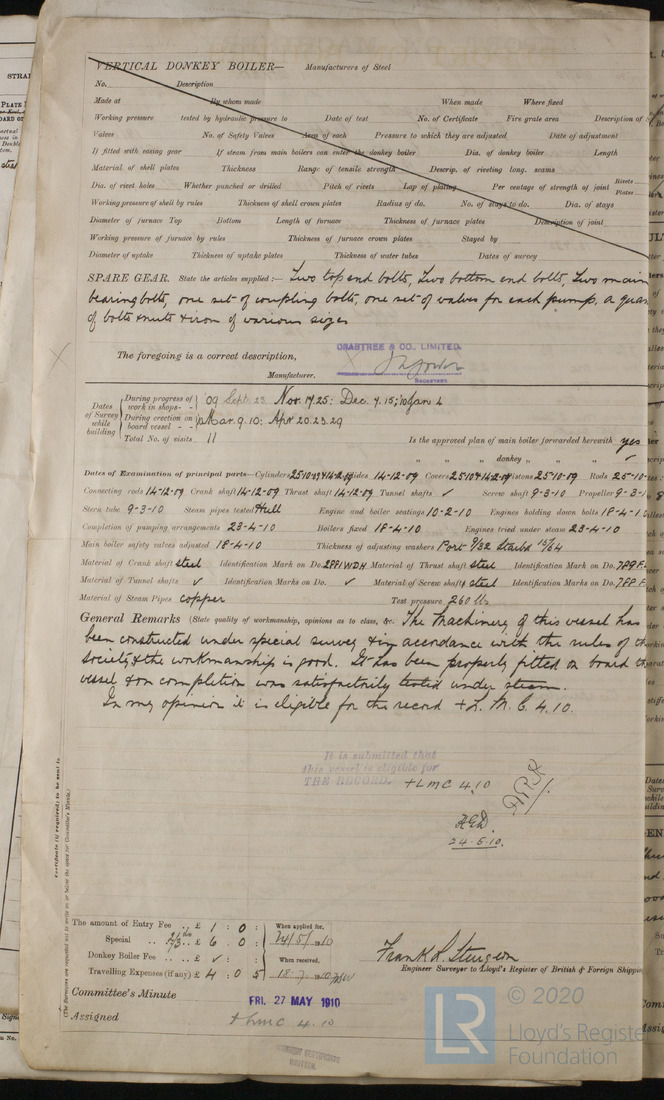 VERTICAL DONKEY BOILER— Manufacturers of Steel
No. Description
Made at By whom made When made Where fixed
Working pressure tested by hydraulic pressure to Date of test No. of Certificate Fire grate area Description of
Valves No. of Safety Valves Area of each Pressure to which they are adjusted Date of adjustment
If fitted with easing gear If steam from main boilers can enter the donkey boiler Dia. of donkey boiler Length
Material of shell plates Thickness Range of tensile strength Descrip. of riveting long. seams
Dia. of rivet holes Whether punched or drilled Pitch of rivets Lap of plating Per centage of strength of joint Rivets Plates
Working pressure of shell by rules Thickness of shell crown plates Radius of do. No. of stays to do. Dia. of stays
Diameter of furnace Top Bottom Length of furnace Thickness of furnace plates Description of joint
Working pressure of furnace by rules Thickness of furnace crown plates Stayed by
Diameter of uptake Thickness of uptake plates Thickness of water tubes Dates of survey
SPARE GEAR. State the articles supplied :— Two top end bolts, Two bottom end bolts, Two main
bearing bolts, one set of coupling bolts, one set of valves for each pump, a quan
of bolts & nuts & iron of various sizes
The foregoing is a correct description,
CRABTREE & CO., LIMITED.
Manufacturer.
SECRETARY.
Dates of Survey while building
During progress of work in shops - - 09 Sept. 23. Nov. 17. 25: Dec. 7. 15; 10 Jan 4
During erection on board vessel - - Mar. 9. 10: Apr 20. 23. 29
Total No. of visits 11
Is the approved plan of main boiler forwarded herewith yes
" " " donkey " " " ✓
Dates of Examination of principal parts—Cylinders 25-10-09 & 14-12-09 Slides 14-12-09 Covers 25-10-09 & 14-12-09 Pistons 25-10-09 Rods 25-10-
Connecting rods 14-12-09 Crank shaft 14-12-09 Thrust shaft 14-12-09 Tunnel shafts ✓ Screw shaft 9-3-10 Propeller 9-3-1
Stern tube 9-3-10 Steam pipes tested Hull Engine and boiler seatings 10-2-10 Engines holding down bolts 18-4-1
Completion of pumping arrangements 23-4-10 Boilers fixed 18-4-10 Engines tried under steam 23-4-10
Main boiler safety valves adjusted 18-4-10 Thickness of adjusting washers Port 9/32 Starbd 15/64
Material of Crank shaft steel Identification Mark on Do. Material of Thrust shaft steel Identification Mark on Do.
Material of Tunnel shafts ✓ Identification Marks on Do. ✓ Material of Screw shafts steel Identification Marks on Do.
Material of Steam Pipes copper Test pressure 260 lbs
General Remarks (State quality of workmanship, opinions as to class, &c. The Machinery of this vessel has
been constructed under special survey & in accordance with the rules of th
Society & the workmanship is good. It has been properly fitted on board th
vessel & on completion was satisfactorily tested under steam.
In my opinion it is eligible for the record + L. M. C. 4. 10.
It is submitted that
this vessel is eligible for
THE RECORD. + LMC 4.10
24.5.10.
Certificate (if required) to be sent to
(The Surveyors are requested not to write on or below the space for Committee's Minute.)
The amount of Entry Fee .. £ 1 : 0 : When applied for,
Special .. .. £ 6 : 0 : 24/5/1910
Donkey Boiler Fee .. .. £ ✓ : : When received,
Travelling Expenses (if any) £ 4 : 0 5 18.7.1910
Frank L Sturgeon
Engineer Surveyor to Lloyd's Register of British & Foreign Shippin
Committee's Minute FRI. 27 MAY 1910
Assigned + LMC 4.10
WRITTEN.
LR
© 2020
Lloyd's Registe
Foundation